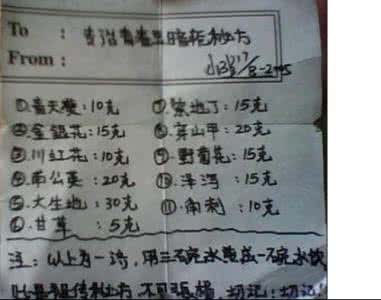 To : 专治青春豆暗疮秘方
From :
8-2005
①.青天葵:10克 ⑦.紫地丁:15克
②.金银花:15克 ⑧.穿山甲:20克
③.川红花:10克 ⑨.野菊花:15克
④.蒲公英:20克 ⑩.泽泻:15克
⑤.大生地:30克 ⑪.角刺:10克
⑥.甘草:5克
注:以上为一济,用三碗水煲成一碗水饮
此是祖传秘方 不可張揚,切记!切记!